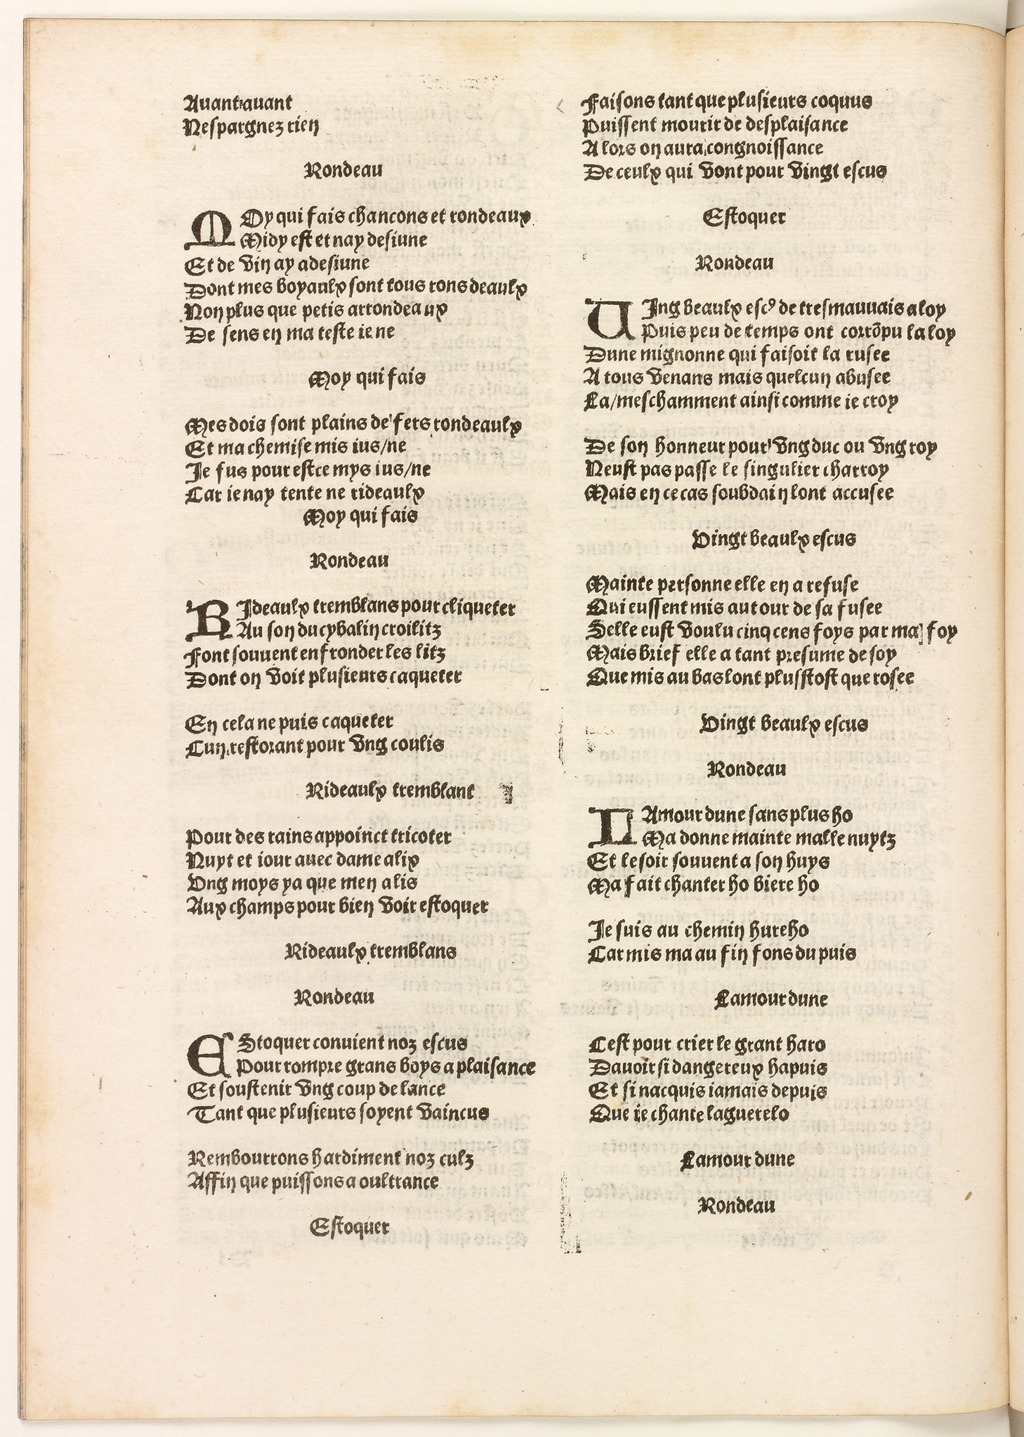 Auant auant
Nespargnez rien
Rondeau
MOy qui fais chancons et rondeaux
Midy est et nay desiune
Et de vin ay adesiune
Dont mes boyaulx sont tous rons deaulx
Non plus que petis arrondeaux
De sens en ma teste ie ne
Moy qui fais
Mes dois sont plains de fers rondeaulx
Et ma chemise mis ius/ne
Je fus pour estce mys ius/ne
Car ie nay tente ne rideaulx
Moy qui fais
Rondeau
RIdeaulx tremblans pour cliqueter
Au son du cybalin croilitz
Font souuent enfronder les litz
Dont on voit plusieurs caqueter
En cela ne puis caqueter
Cun restorant pour vng coulis
Rideaulx tremblant
Pour des rains appoinct tricoter
Nuyt et iour auec dame alix
Vng moys ya que men alis
Aux champs pour bien voir estoquer
Rideaulx tremblans
Rondeau
EStoquer conuient noz escus
Pour rompre grans boys a plaisance
Et soustenir vng coup de lance
Tant que plusieurs soyent vaincus
Rembourrons hardiment noz culz
Affin que puissons a oultrance
Estoquer
Faisons tant que plusieurs coquus
Puissent mourir de desplaisance
Alors on aura congnoissance
De ceulx qui vont pour vingt escus
Estoquer
Rondeau
UIngt beaulx escꝰ de tresmauuais aloy
Puis peu de temps ont corrõpu la loy
Dune mignonne qui faisoit la rusee
A tous venans mais quelcun abusee
La/meschamment ainsi comme ie croy
De son honneur pour vng duc ou vng roy
Neust pas passe le singulier charroy
Mais en ce cas soubdain lont accusee
Vingt beaulx escus
Mainte personne elle en a refuse
Qui eussent mis autour de sa fusee
Selle eust voulu cinq cens foys par ma foy
Mais brief elle a tant presume de soy
Que mis au bas lont plusstost que rosee
Vingt beaulx escus
Rondeau
LAmour dune sans plus ho
Ma donne mainte malle nuytz
Et le soir souuent a son huys
Ma fait chanter ho biere ho
Je suis au chemin hureho
Car mis ma au fin fons du puis
Lamour dune
Cest pour crier le grant haro
Dauoir si dangereux hapuis
Et si nacquis iamais depuis
Que ie chante laguerelo
Lamour dune
Rondeau